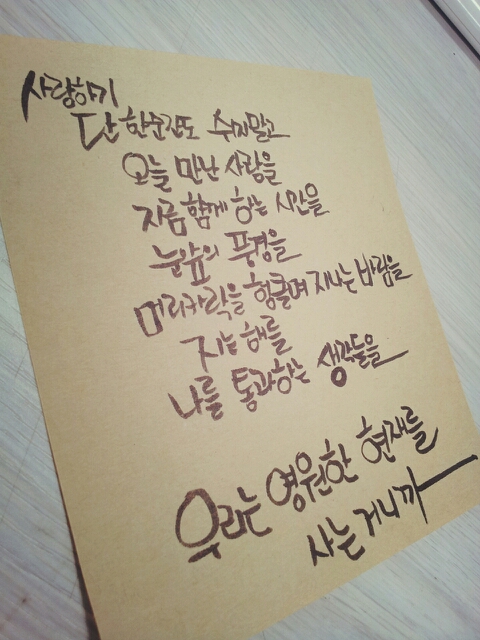 사랑하기
단 한순간도 쉬지말고
오늘 만난 사람을
지금 함께 하는 시간을
눈앞의 풍경을
머리카락을 헝클며 지나는 바람을
지는 해를
나를 통과하는 생각들을
우리는 영원한 현재를
사는 거니까